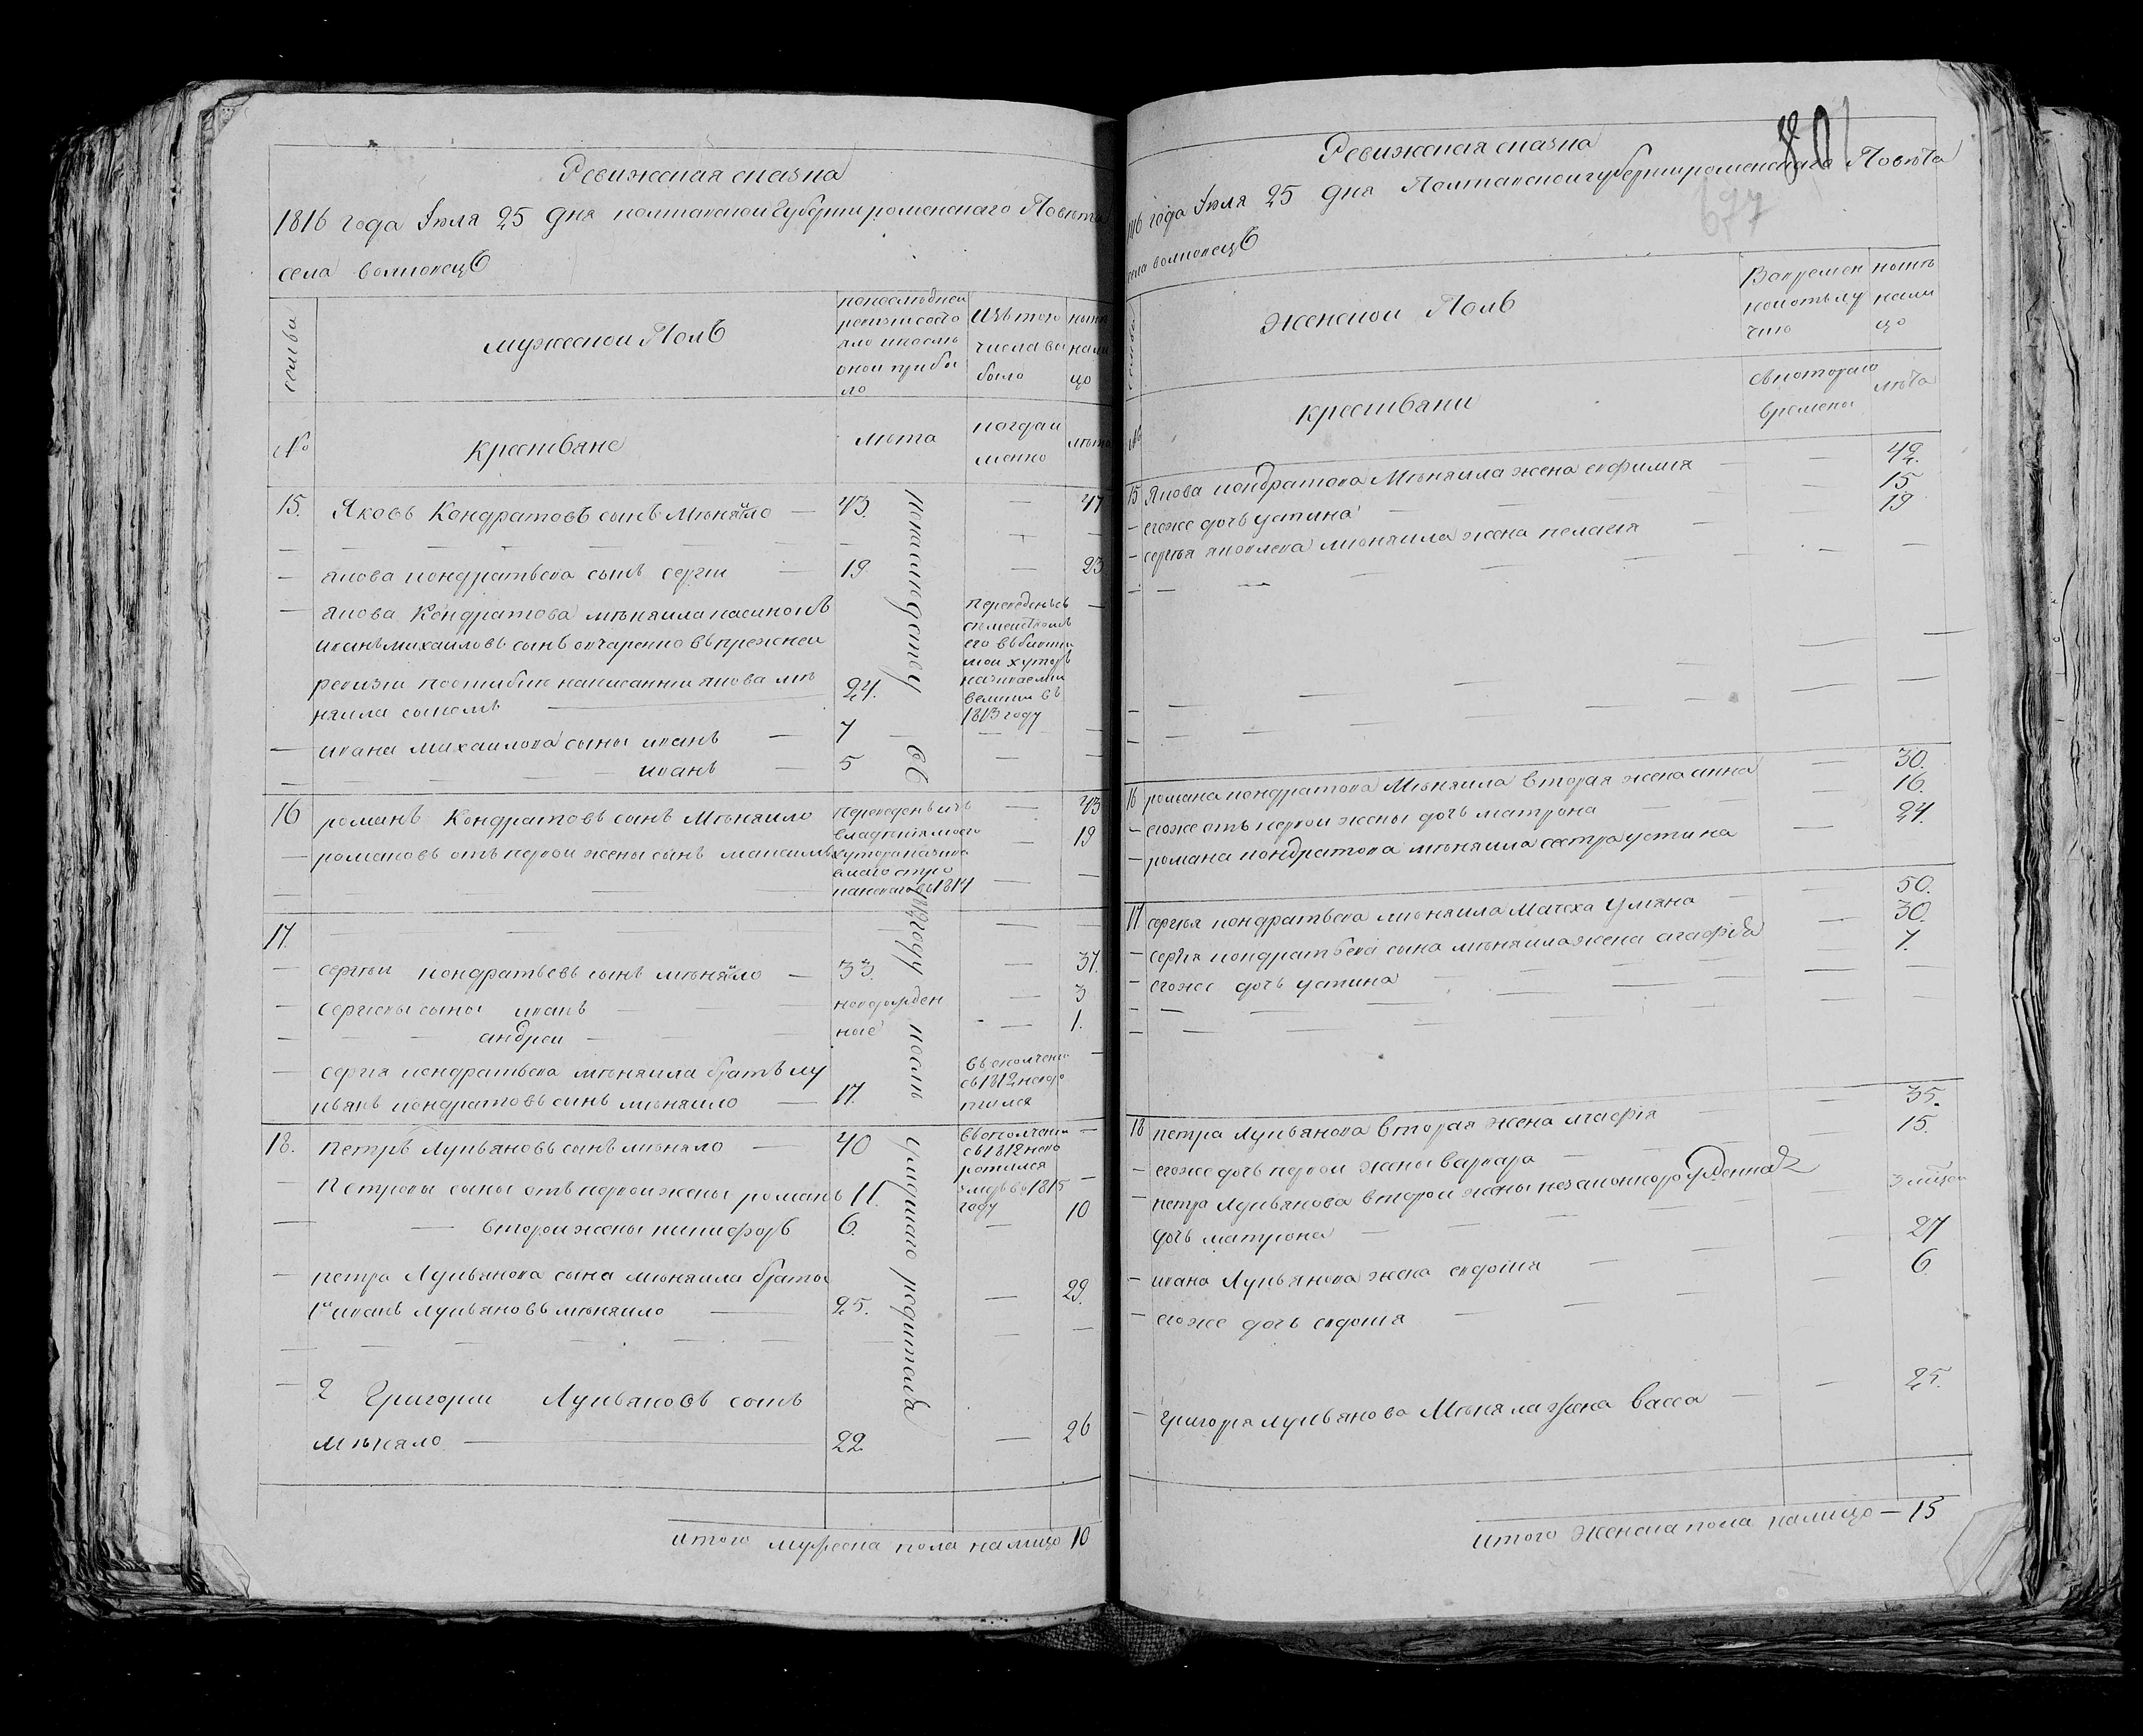 Ревижская сказка
1816 года Іюля 25 дня полтавской губерніи роменского Повета
села волковецъ
семьи
мужеской Полъ
по последней
ревизіи состо
яло и после
оной прибы
ло
Изъ того
числа вы
было
ныне
нали
цо
№
крестьяне
лета
когда и
менно
лета
15. Яковъ Кондратовъ сынъ Меняйло — 43. — 47
— якова кондратьева сынъ сергій — 19 — 23
— якова Кондратова меняила пасинокъ
иванъ михаиловъ сынъ овчаренко въ прежней
ревизіи написанній якова ме
няила сыномъ — 24.
переведенъ съ
семействомъ
его въ
хуторъ
называемій
въ
1813 году
— ивана михаилова сыны иванъ — 7 — —
иванъ — 5 — —
16 романъ Кондратовъ сынъ Меняило
переведенъ изъ
владенія моего
хутора называ
емаго
1814
— 43
— романовъ отъ первой жены сынъ максимъ — 19
17.
— сергій кондратьевъ сынъ меняйло — 33. — 37.
— сергіевы сыны иванъ — новорожден — 3
— андрей — ные — 1.
— сергія кондратьева меняила братъ лу
кьянъ кондратовъ сынъ меняило — 17.
въ ополчени
съ 1812 не воз
тился
18. петръ Лукьяновъ сынъ меняло — 40
въ ополчени
съ 1812 не во
ротился
— Петровы сыны отъ первой жены романъ 11.
умре въ 1815
году
— второй жены никифоръ 6. — 10
— петра Лукьянова сына меняила братья
1й иванъ Лукьяновъ меняило — 25. — 29.
— 2 Григорій Лукьяновъ сынъ
меняло — 22 — 26
по наследству
въ
году
после
умершаго родителя
итого мужеска пола налицо 10
Ревижская сказка
801
677
1816 года Іюля 25 дня Полтавской губерніи роменскаго Повета
села волковецъ
женской Полъ
Во времен
ной отлу
чке
ныне
нали
цо
№
крестьяни
съ котораго
времены
лета
15 Якова кондратова Меняила жена евфимія — — 42.
— егоже дочь устина — — 15
— сергія яковлева меняила жена пелагія — — 19
16 романа кондратова Меняила вторая жена анна — 30.
— егоже отъ первой жены дочь матрона — 16.
— романа кондратова меняила сестра устина — 24.
17 сергія кондратьева меняила Мачеха Уляна — 50.
— сергія кондратьева сына меняила жена агафія — 30.
— егоже дочь устина — 7.
18 петра Лукьянова вторая жена агафія — 35.
— егоже дочь первой жены варвара — 15.
— петра Лукьянова второй жены незаконнорожденная
дочь матрона
— ивана Лукьянова жена евдокія — 27
— егоже дочь евдокія — 6
— Григорія лукьянова Меняла жена васса — 25.
итого женска пола налицо — 15